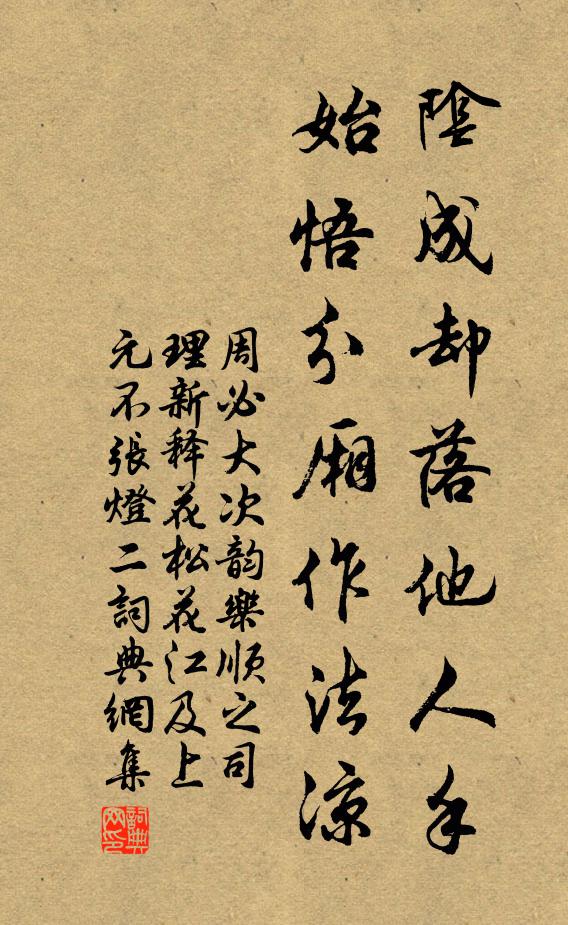 陰成却落他人手
始悟分廂作法涼
周必大次韵樂順之司
理新释花松花江及上
元不張燈二詞典網集
詞典网印